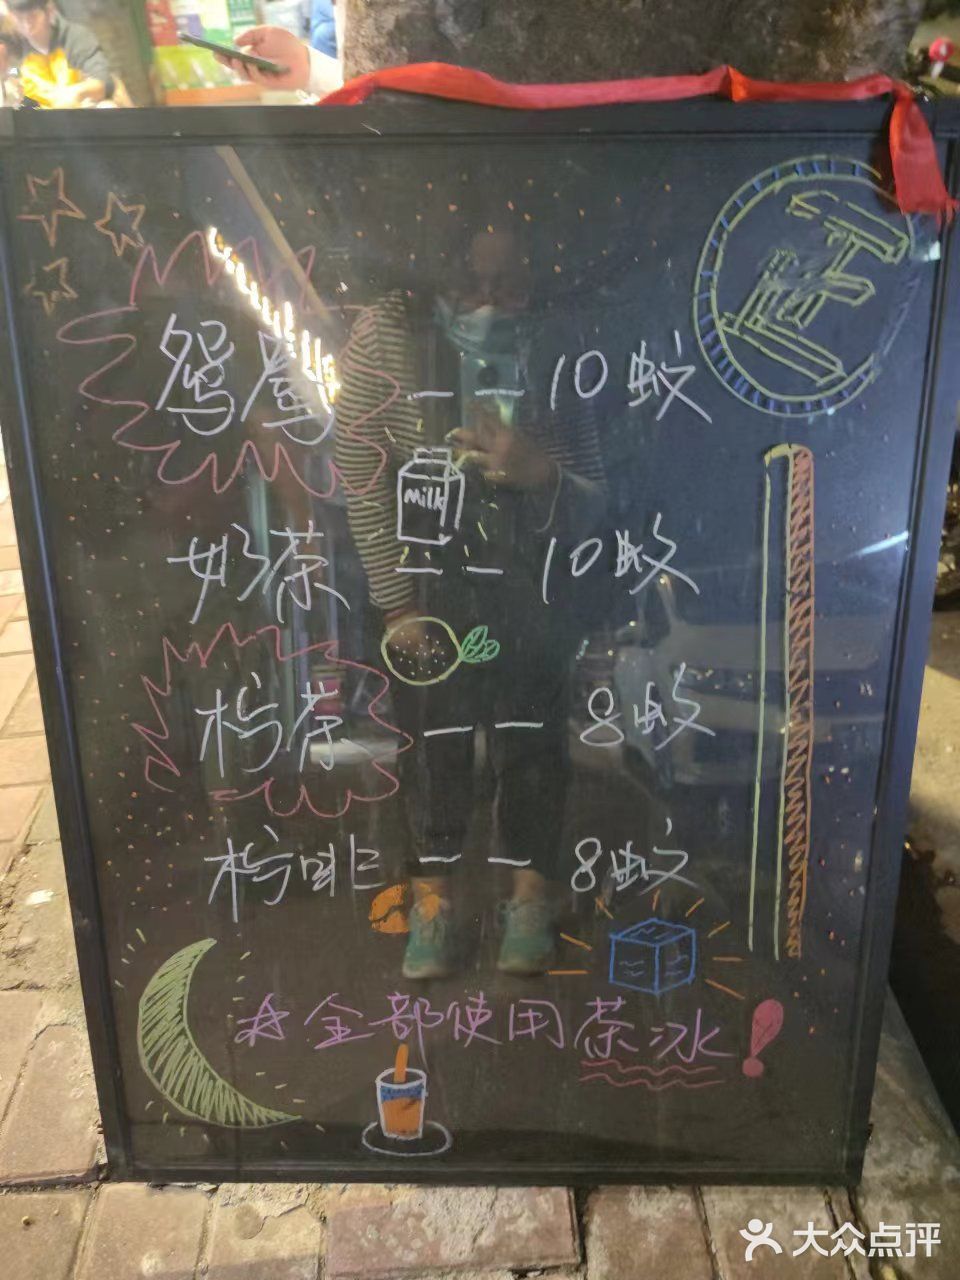 鸳鸯 - - 10蚊
milk
奶茶 - - 10蚊
柠茶 - - 8蚊
柠啡 - - 8蚊
☆全部使用茶冰!
大众点评